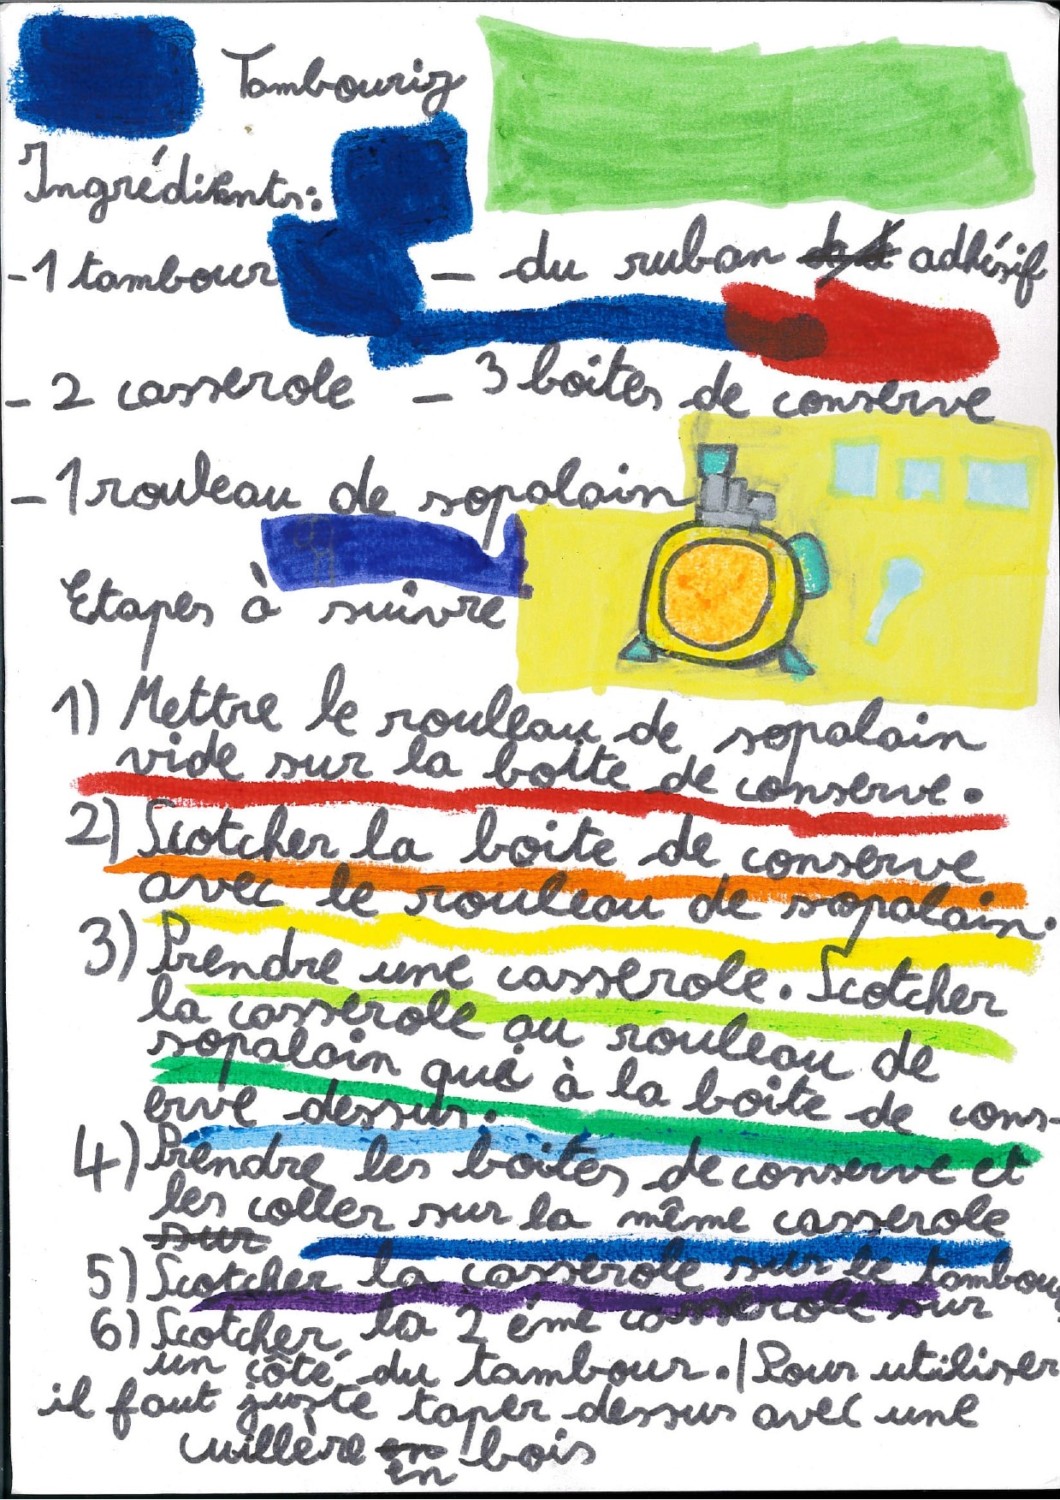 Tambouriz
Ingrédients:
-1 tambour - du ruban adhésif
- 2 casserole - 3 boîtes de conserve
- 1 rouleau de sopalain
Etapes à suivre
1) Mettre le rouleau de sopalain
vide sur la boîte de conserve.
2) Scotcher la boite de conserve
avec le rouleau de sopalain.
3) Prendre une casserole. Scotcher
la casserole au rouleau de
sopalain qui à la boîte de cons-
erve dessus.
4) Prendre les boîtes de conserve et
les coller sur la même casserole
sur
5) Scotcher la casserole sur le tambour
6) Scotcher la 2 ème casserole sur
un côté du tambour. / Pour utiliser
il faut juste taper dessus avec une
cuillère en bois